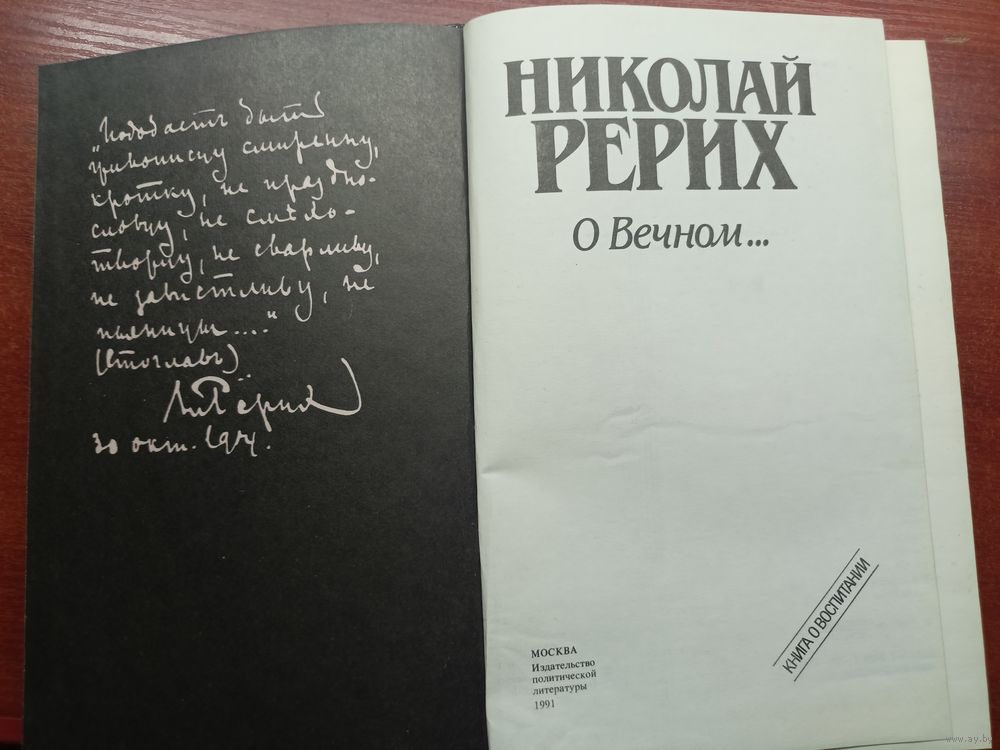 „Подобаетъ быти
живописцу смиренну,
кротку, не праздно-
словцу, не смѣхо-
творцу, не сварливу,
не завистливу, не
пьяницы...."
(Стоглавъ)
НРерих
30 окт.
НИКОЛАЙ
РЕРИХ
О Вечном...
КНИГА О ВОСПИТАНИИ
МОСКВА
Издательство
политической
литературы
1991
www.ay.by